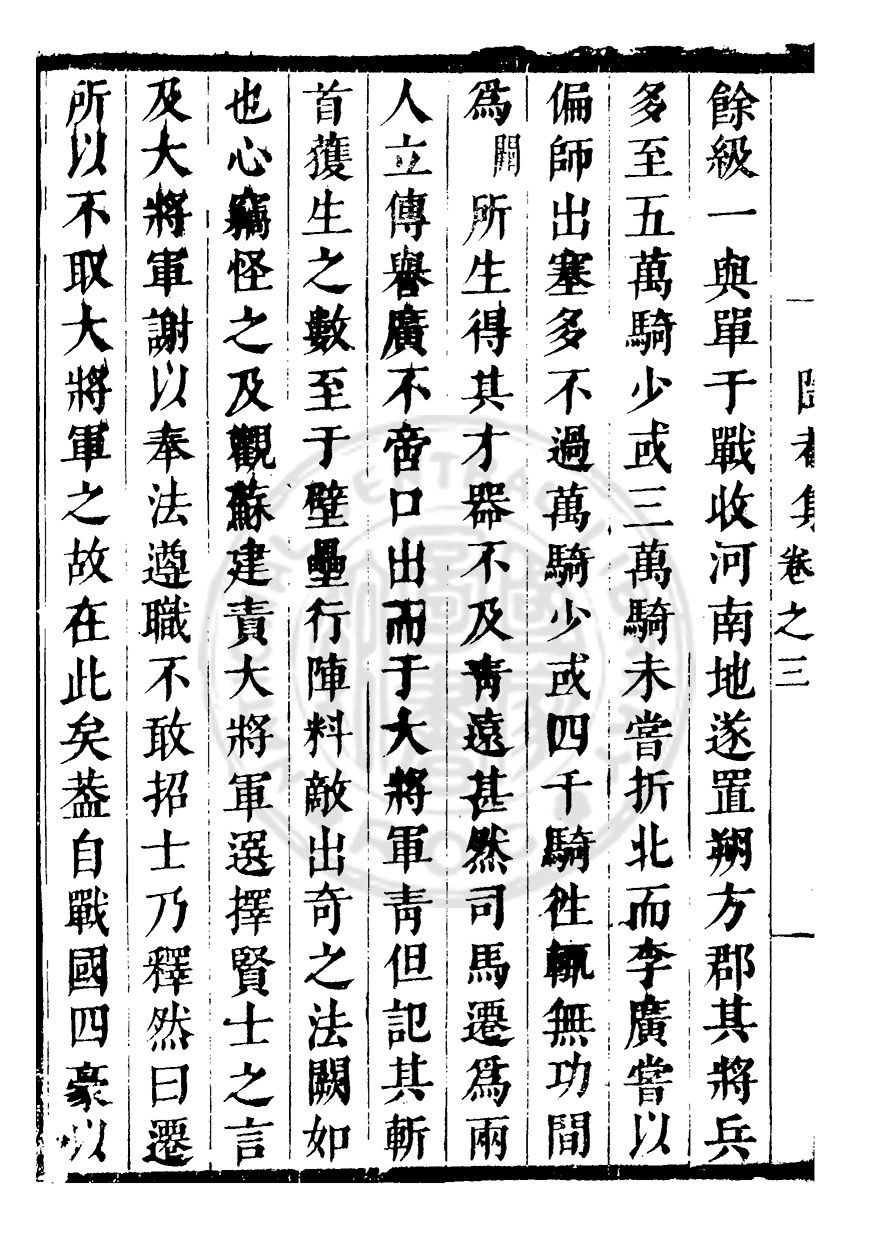 卷之三
餘級一與單于戰收河南地遂置朔方郡其將兵
多至五萬騎少或三萬騎未嘗折北而李廣嘗以
偏師出塞多不過萬騎少或四千騎徃輒無功間
爲闕所生得其才器不及靑遠甚然司馬遷爲兩
人立傳譽廣不啻口出而于大將軍靑但記其斬
首獲生之數至于壁壘行陣料敵出奇之法闕如
也心竊怪之及觀蘇建責大將軍選擇賢士之言
及大將軍謝以奉法遵職不敢招士乃釋然曰遷
所以不取大將軍之故在此矣葢自戰國四豪以